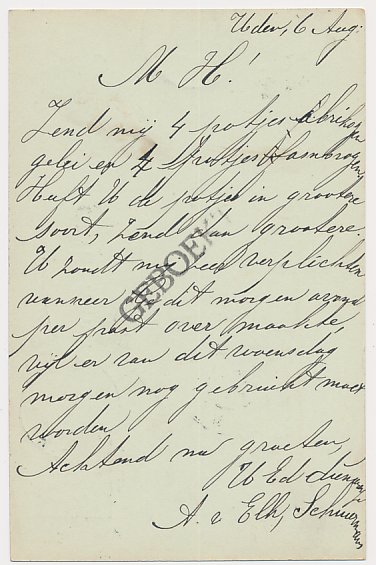 Uden, 6 Aug:
M H!
Zend mij 4 potjes Abrikozen
gelei en 4 potjes Frambozen
Heft U de potjes in grootere
soort, zend dan grootere.
U zoudt mij zeer verplichten
wanneer U dit morgen avond
per post over maakte,
wijl er van dit woensdag
morgen nog gebruikt moet
worden
Achtend na groeten,
U Ed dienaar
A. v Elk, Schuermans
GEBOEKT